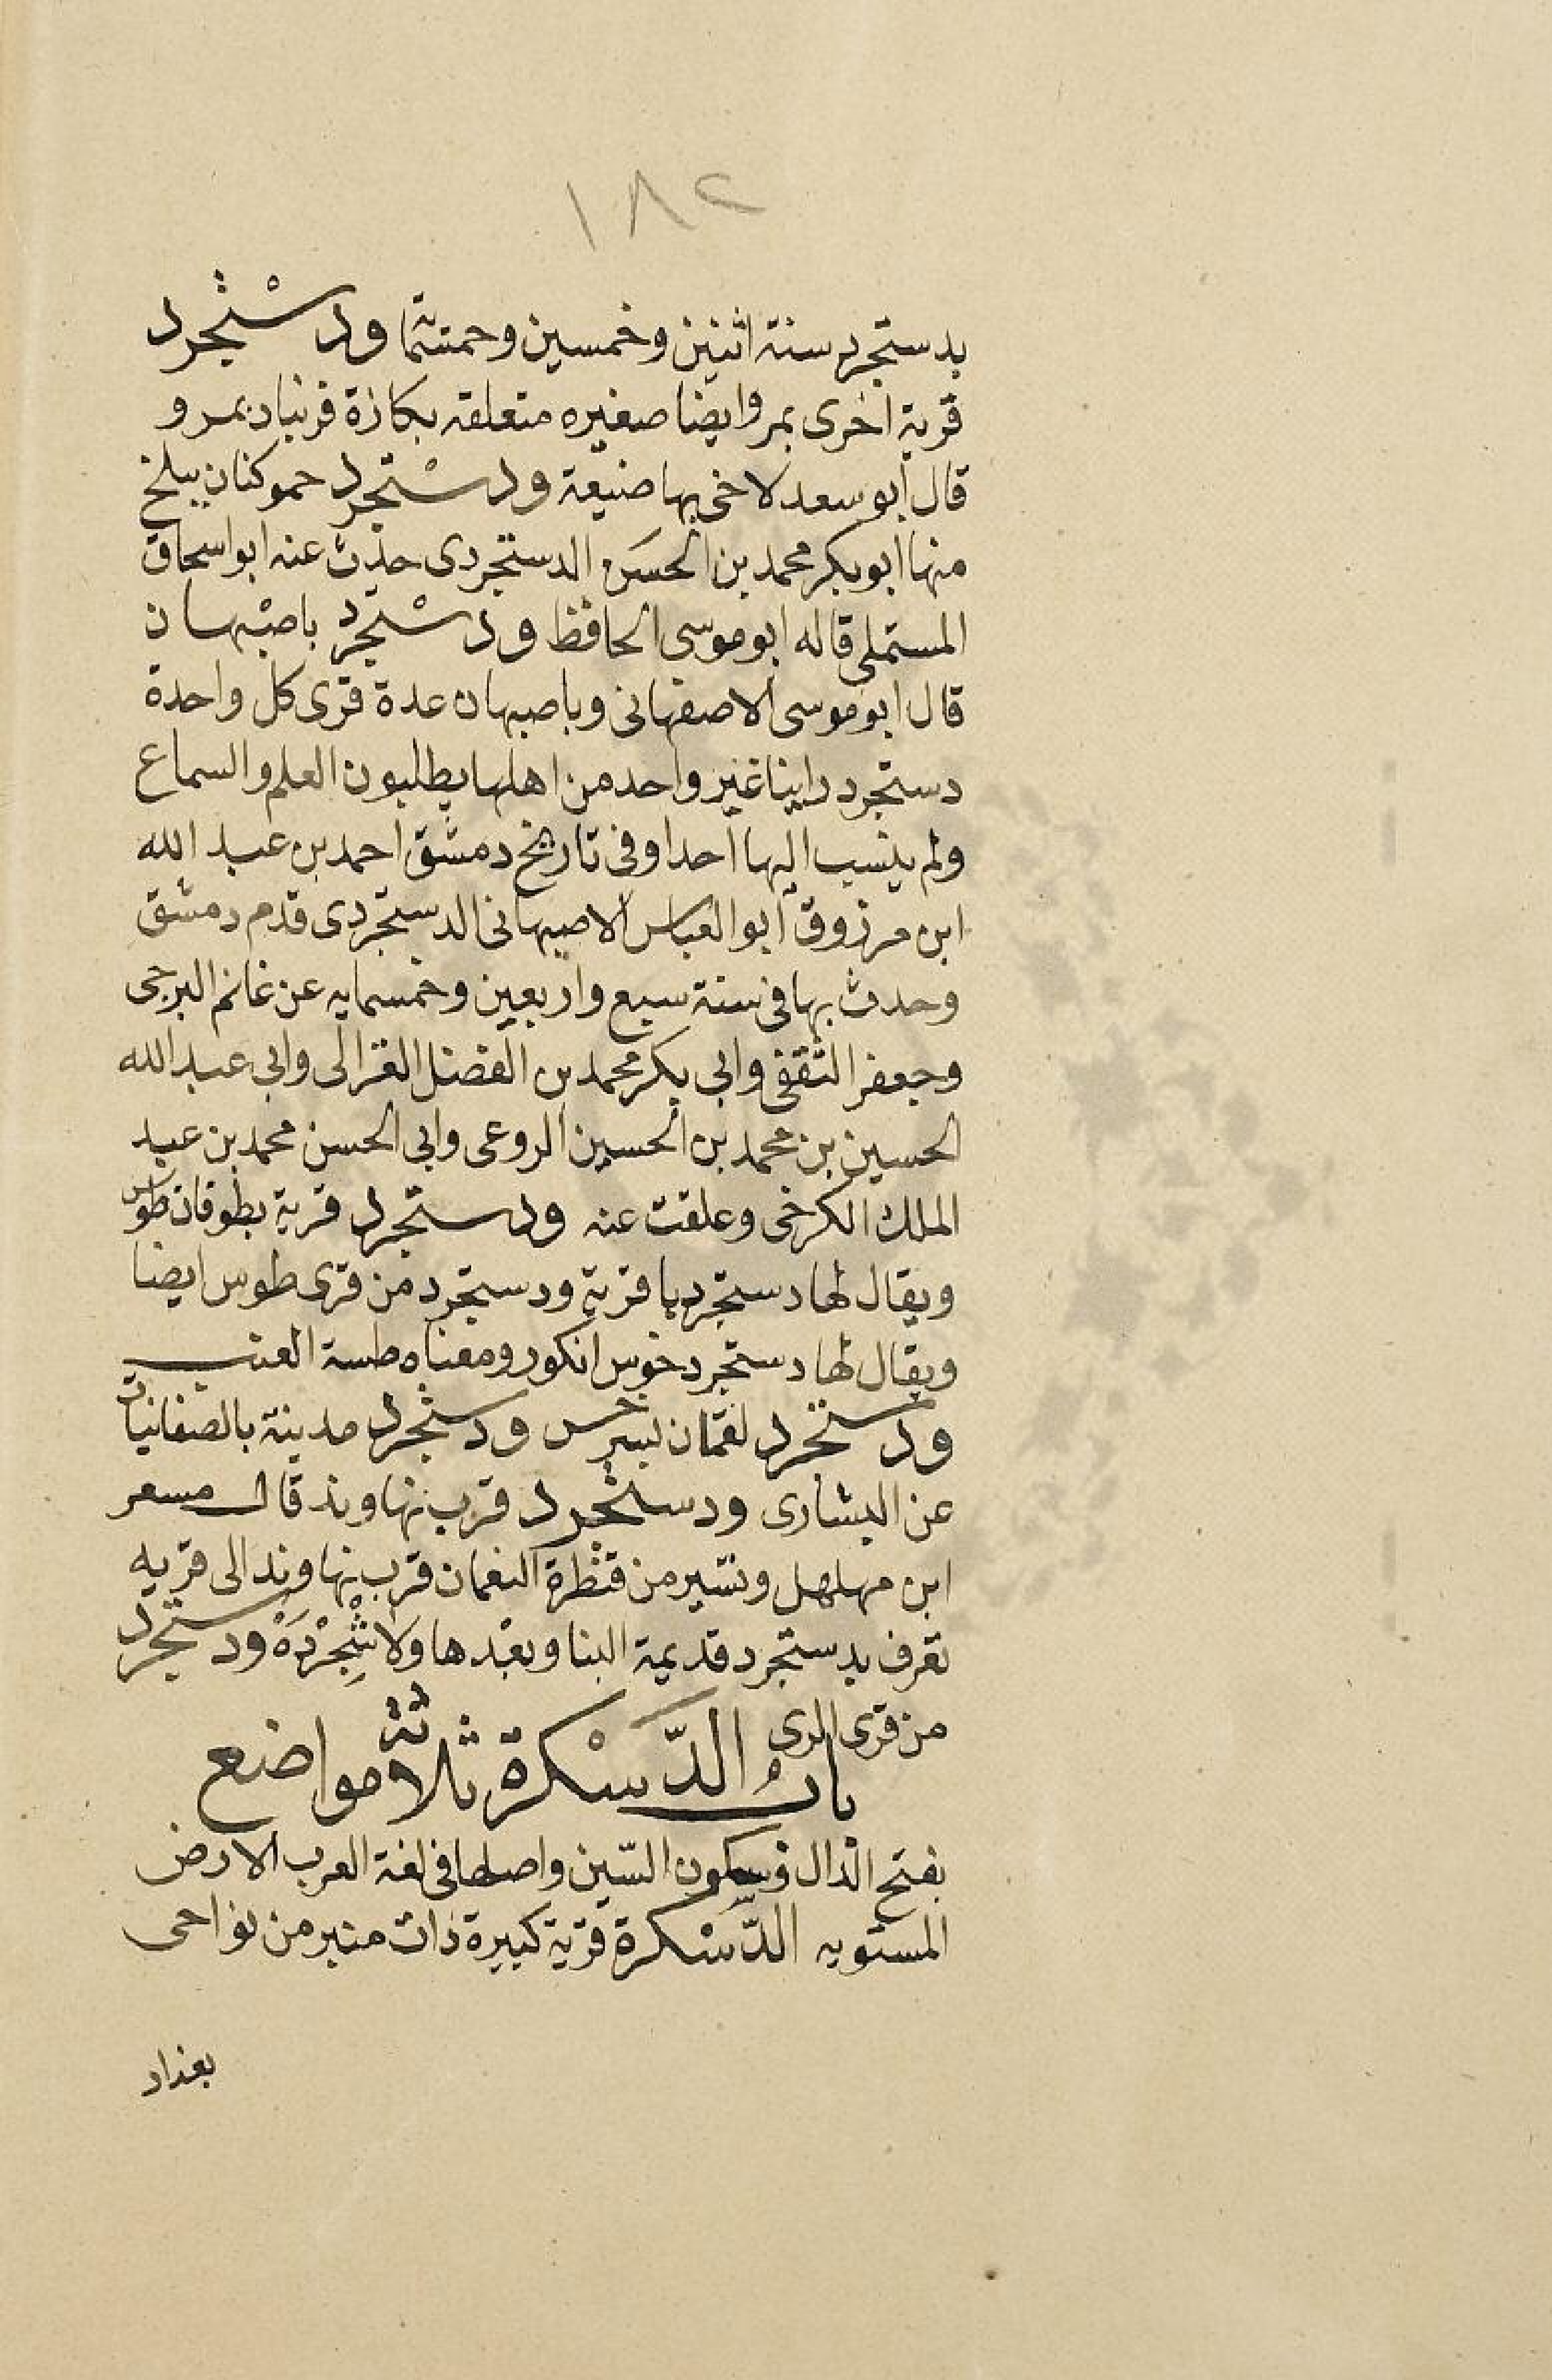 ١٨٢
بدستجرد سنة اثنين وخمسين وخمسمّا ودسْتجرد
قرية اخرى بمرو ايضا صغيره متعلقه بكازة قرنباد بمرو
قال ابو سعد لاخى بها ضيعة ودسْتجرد حموكنان ببلخ
منها ابو بكر محمد بن الحسَن الدستجردى حدث عنه ابو اسحاق
المستملى قاله ابو موسى الحافظ ودسْتجرد باصْبهان
قال ابو موسى الاصفهانى وباصبهان عدة قرى كل واحدة
دستجرد راينا غير واحد من اهلها يطلبون العلم والسماع
ولم ينسب اليها احدا وفى تاريخ دمشق احمد بن عبد الله
ابن مرزوق ابو العباس الاصبهانى الدستجردى قدم دمشق
وحدث بها فى سنة سبع واربعين وخمسمايه عن غانم البرجى
وجعفر الثقفى وابى بكر محمد بن الفضل القرالى وابى عبد الله
الحسين بن محمد بن الحسين الروعى وابى الحسن محمد بن عبد
الملك الكرخى وعلقت عنه ودستجرد قرية بطوقان طوس
ويقال لها دستجرد يا قرية ودستجرد من قرى طوس ايضا
ويقال لها دستجرد خوس انكور ومعناه طسة العنب
ودستجرد لقمان لسرخس ودستجرد مدينة بالصغانيات
عن البشارى ودستجرد قرب نهاوند قال مسعر
ابن مهلهل ونسير من قنطرة النعمان قرب نهاوند الى قريه
تعرف بدستجرد قديمة البنا وبعْدها ولاشْجِرْدَهْ ودستجرد
من قرى الرى
بابُ الدَّسْكرة ثلاثة مواضع
بفتح الدال وسكون السّين واصلها فى لغة العرب الارض
المستويه الدَّسْكرة قرية كبيرة ذات منبر من نواحى
بغداد